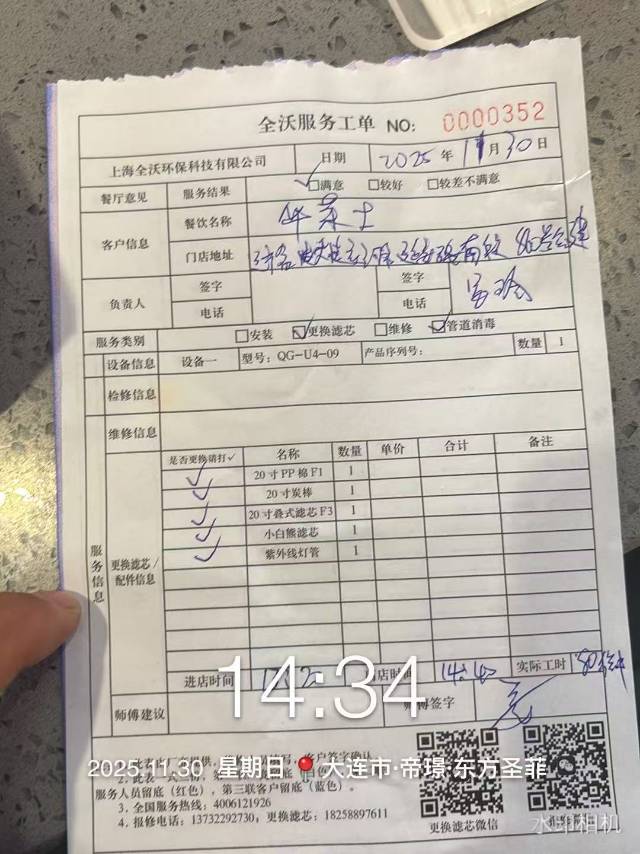 全沃服务工单 NO: 0000352
上海全沃环保科技有限公司 日期 2025 年 11 月 30 日
餐厅意见 服务结果 ✓□满意 □较好 □较差不满意
客户信息 餐饮名称
门店地址
负责人 签字 签字
电话 电话
服务类别 □安装 ☑更换滤芯 □维修 ☑管道消毒
设备信息 设备一 型号: QG-U4-09 产品序列号: 数量 1
检修信息
维修信息
服务信息
更换滤芯/配件信息
是否更换请打✓ 名称 数量 单价 合计 备注
✓ 20寸PP棉F1 1
✓ 20寸炭棒 1
✓ 20寸叠式滤芯F3 1
✓ 小白熊滤芯 1
✓ 紫外线灯管 1
进店时间 店时间 实际工时
师傅建议 师傅签字
14:34
2025.11.30 星期日 大连市·帝璟·东方圣菲
服务人员留底(红色),第三联客户留底(蓝色)。
3. 全国服务热线: 4006121926
4. 报修电话: 13732292730, 更换滤芯: 18258897611
更换滤芯微信
水印相机